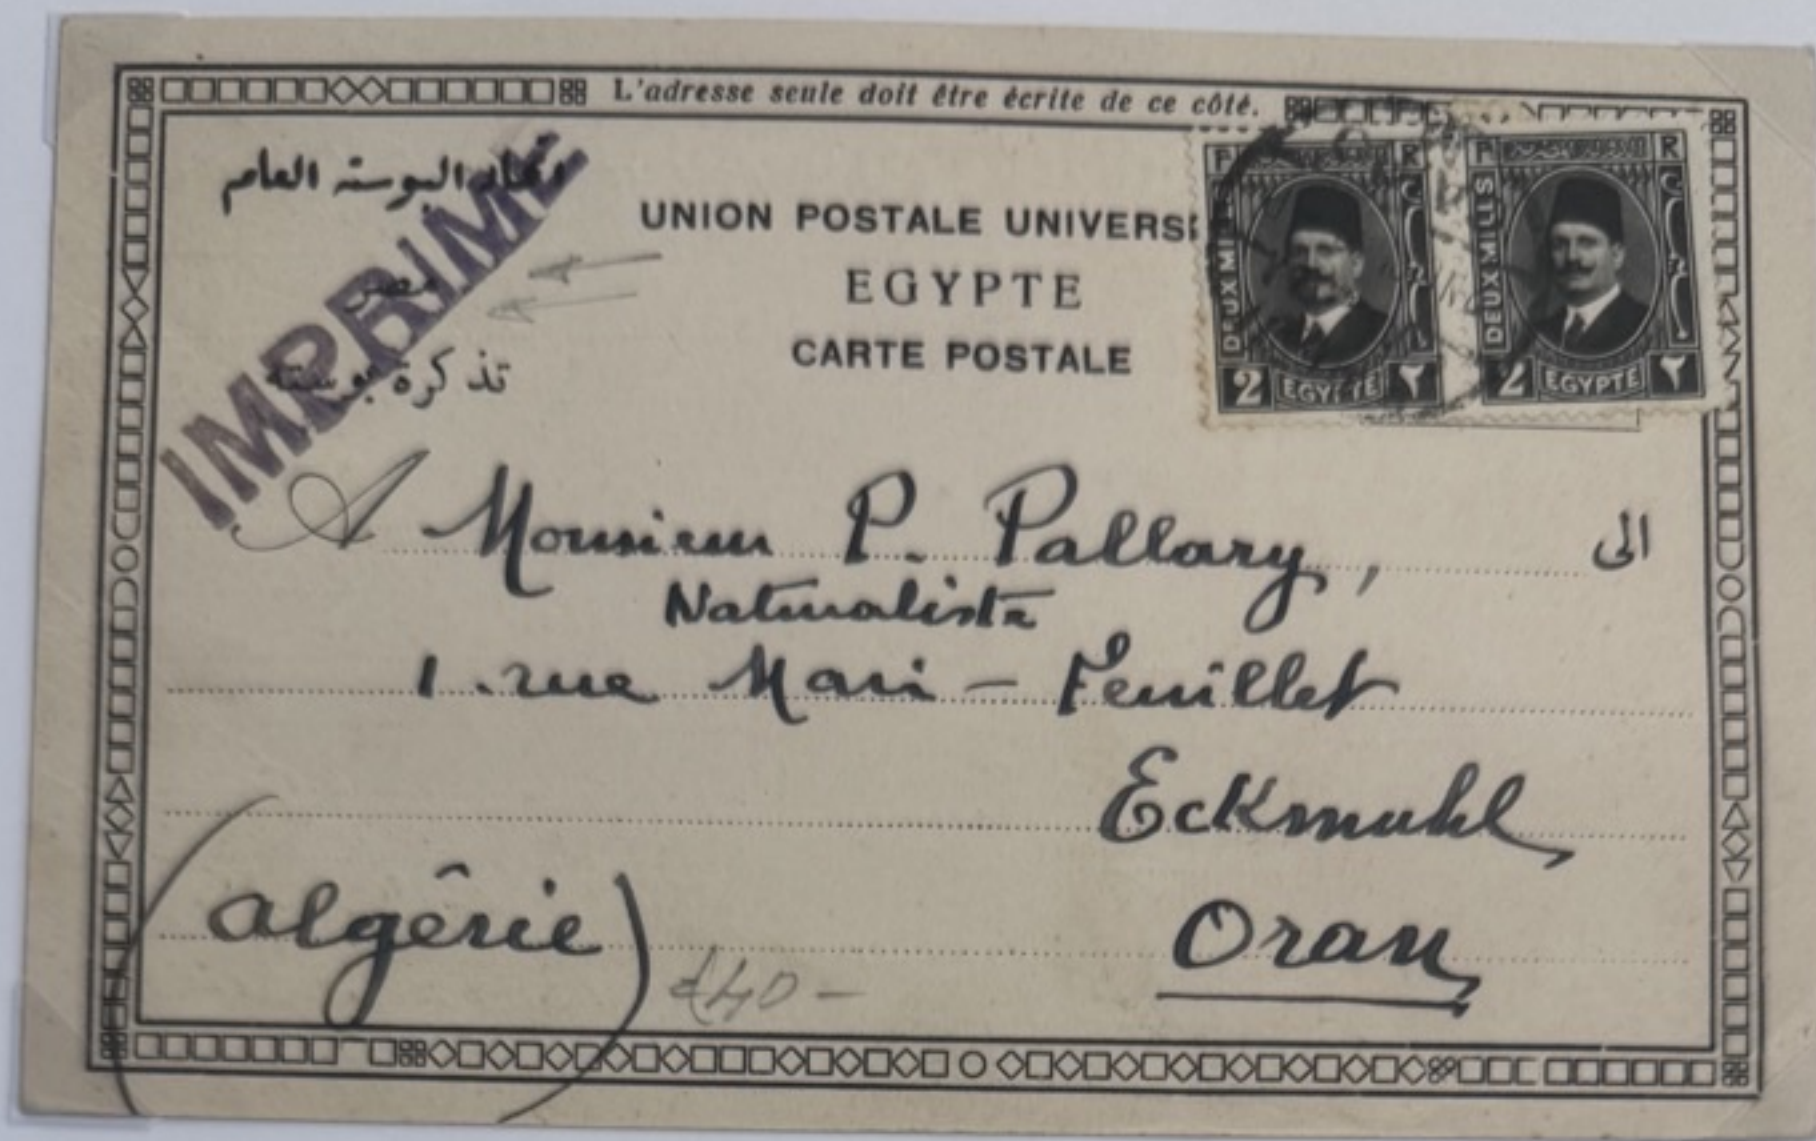 L'adresse seule doit être écrite de ce côté.
البوستة العام
IMPRIMÉ
مصر
تذكرة بوستة
UNION POSTALE UNIVERS
EGYPTE
CARTE POSTALE
P R
DEUX MILLS
2 EGYPTE ٢
P R
DEUX MILLS
2 EGYPTE ٢
A Monsieur P. Pallary, الى
Naturaliste
1. rue Mari - Feuillet
Eckmuhl
Oran
(Algérie)
£40-